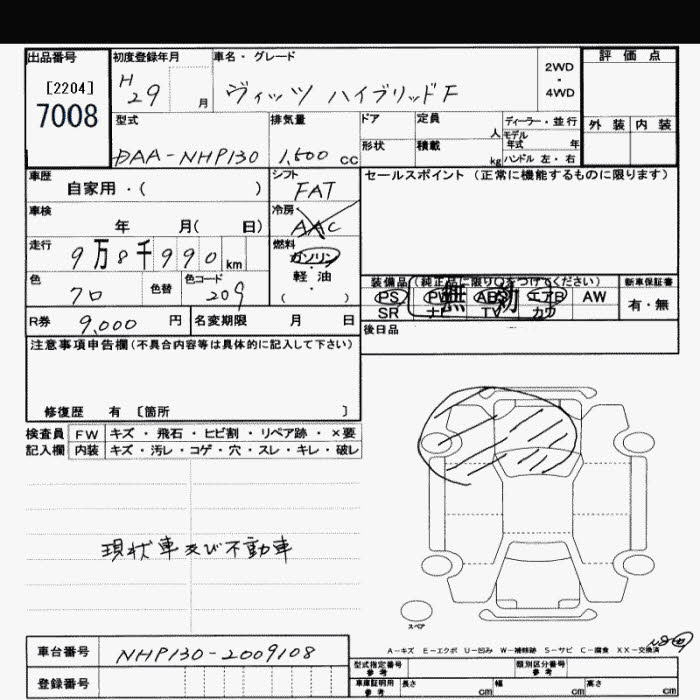 出品番号
[2204]
7008
初度登録年月
H
29 月
車名・グレード
ヴィッツ ハイブリッドF
2WD
・
4WD
評価点
外装 内装
型式
DAA-NHP130
排気量
1,500 CC
ドア
定員
人
ディーラー・並行
モデル
年式 年
形状
積載
kg
ハンドル 左・右
車歴
自家用・( )
シフト
FAT
セールスポイント (正常に機能するものに限ります)
車検
年 月( 日)
冷房
AAC
走行
9万8千990km
燃料
ガソリン
・
軽油
( )
色
クロ
色替
色コード
209
装備品(純正品に限り○をつけてください)
新車保証書
PS PW ABS エアB AW
有・無
無効
SR ナビ TV カワ
R券
9,000 円
名変期限 月 日
後日品
注意事項申告欄(不具合内容等は具体的に記入して下さい)
修復歴 有 〔箇所 〕
検査員
記入欄
FW キズ・飛石・ヒビ割・リペア跡・×要
内装 キズ・汚レ・コゲ・穴・スレ・キレ・破レ
現状車及び不動車
スペア
A-キズ E-エクボ U-凹み W-補修跡 S-サビ C-腐食 XX-交換済
車台番号
NHP130-2009108
登録番号
型式指定番号
参考
類別区分番号
参考
車庫証明用
参考
長さ cm
幅 cm
高さ cm